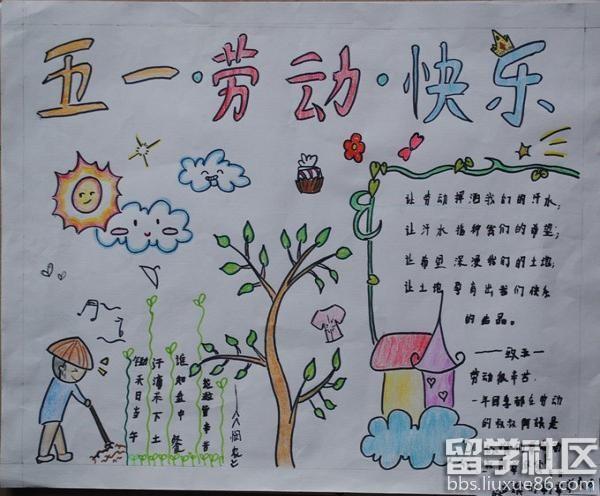 五一·劳动·快乐
让劳动挥洒我们的汗水;
让汗水播种我们的希望;
让希望我们的土地;
让土地孕育出我们快乐
的品。
——致五一
劳动最辛苦.
一年四季都在劳动
的叔叔阿姨是
锄禾日当午
汗滴禾下土
谁知盘中餐
粒粒皆辛苦
——《悯农》
留学社区
bbs.liuxue86.com